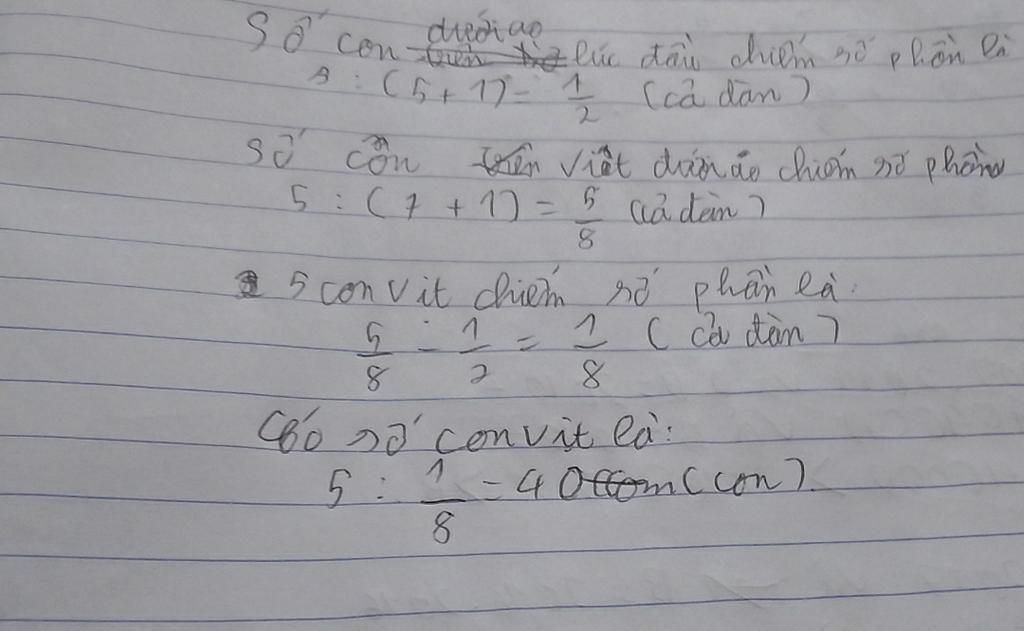 Số con dưới ao lúc đầu chiếm số phần là
3 : (5 + 1) = 1/2 (cả đàn)
Số vịt dưới ao chiếm số phần
5 : (7 + 1) = 5/8 (cả đàn)
5 con vịt chiếm số phần là:
5/8 - 1/2 = 1/8 (cả đàn)
Có số con vịt là:
5 : 1/8 = 40 (con)